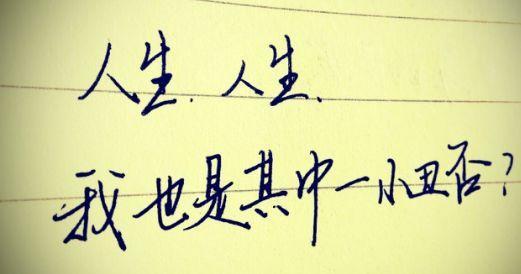 人生.人生.
我也是其中一小丑否?